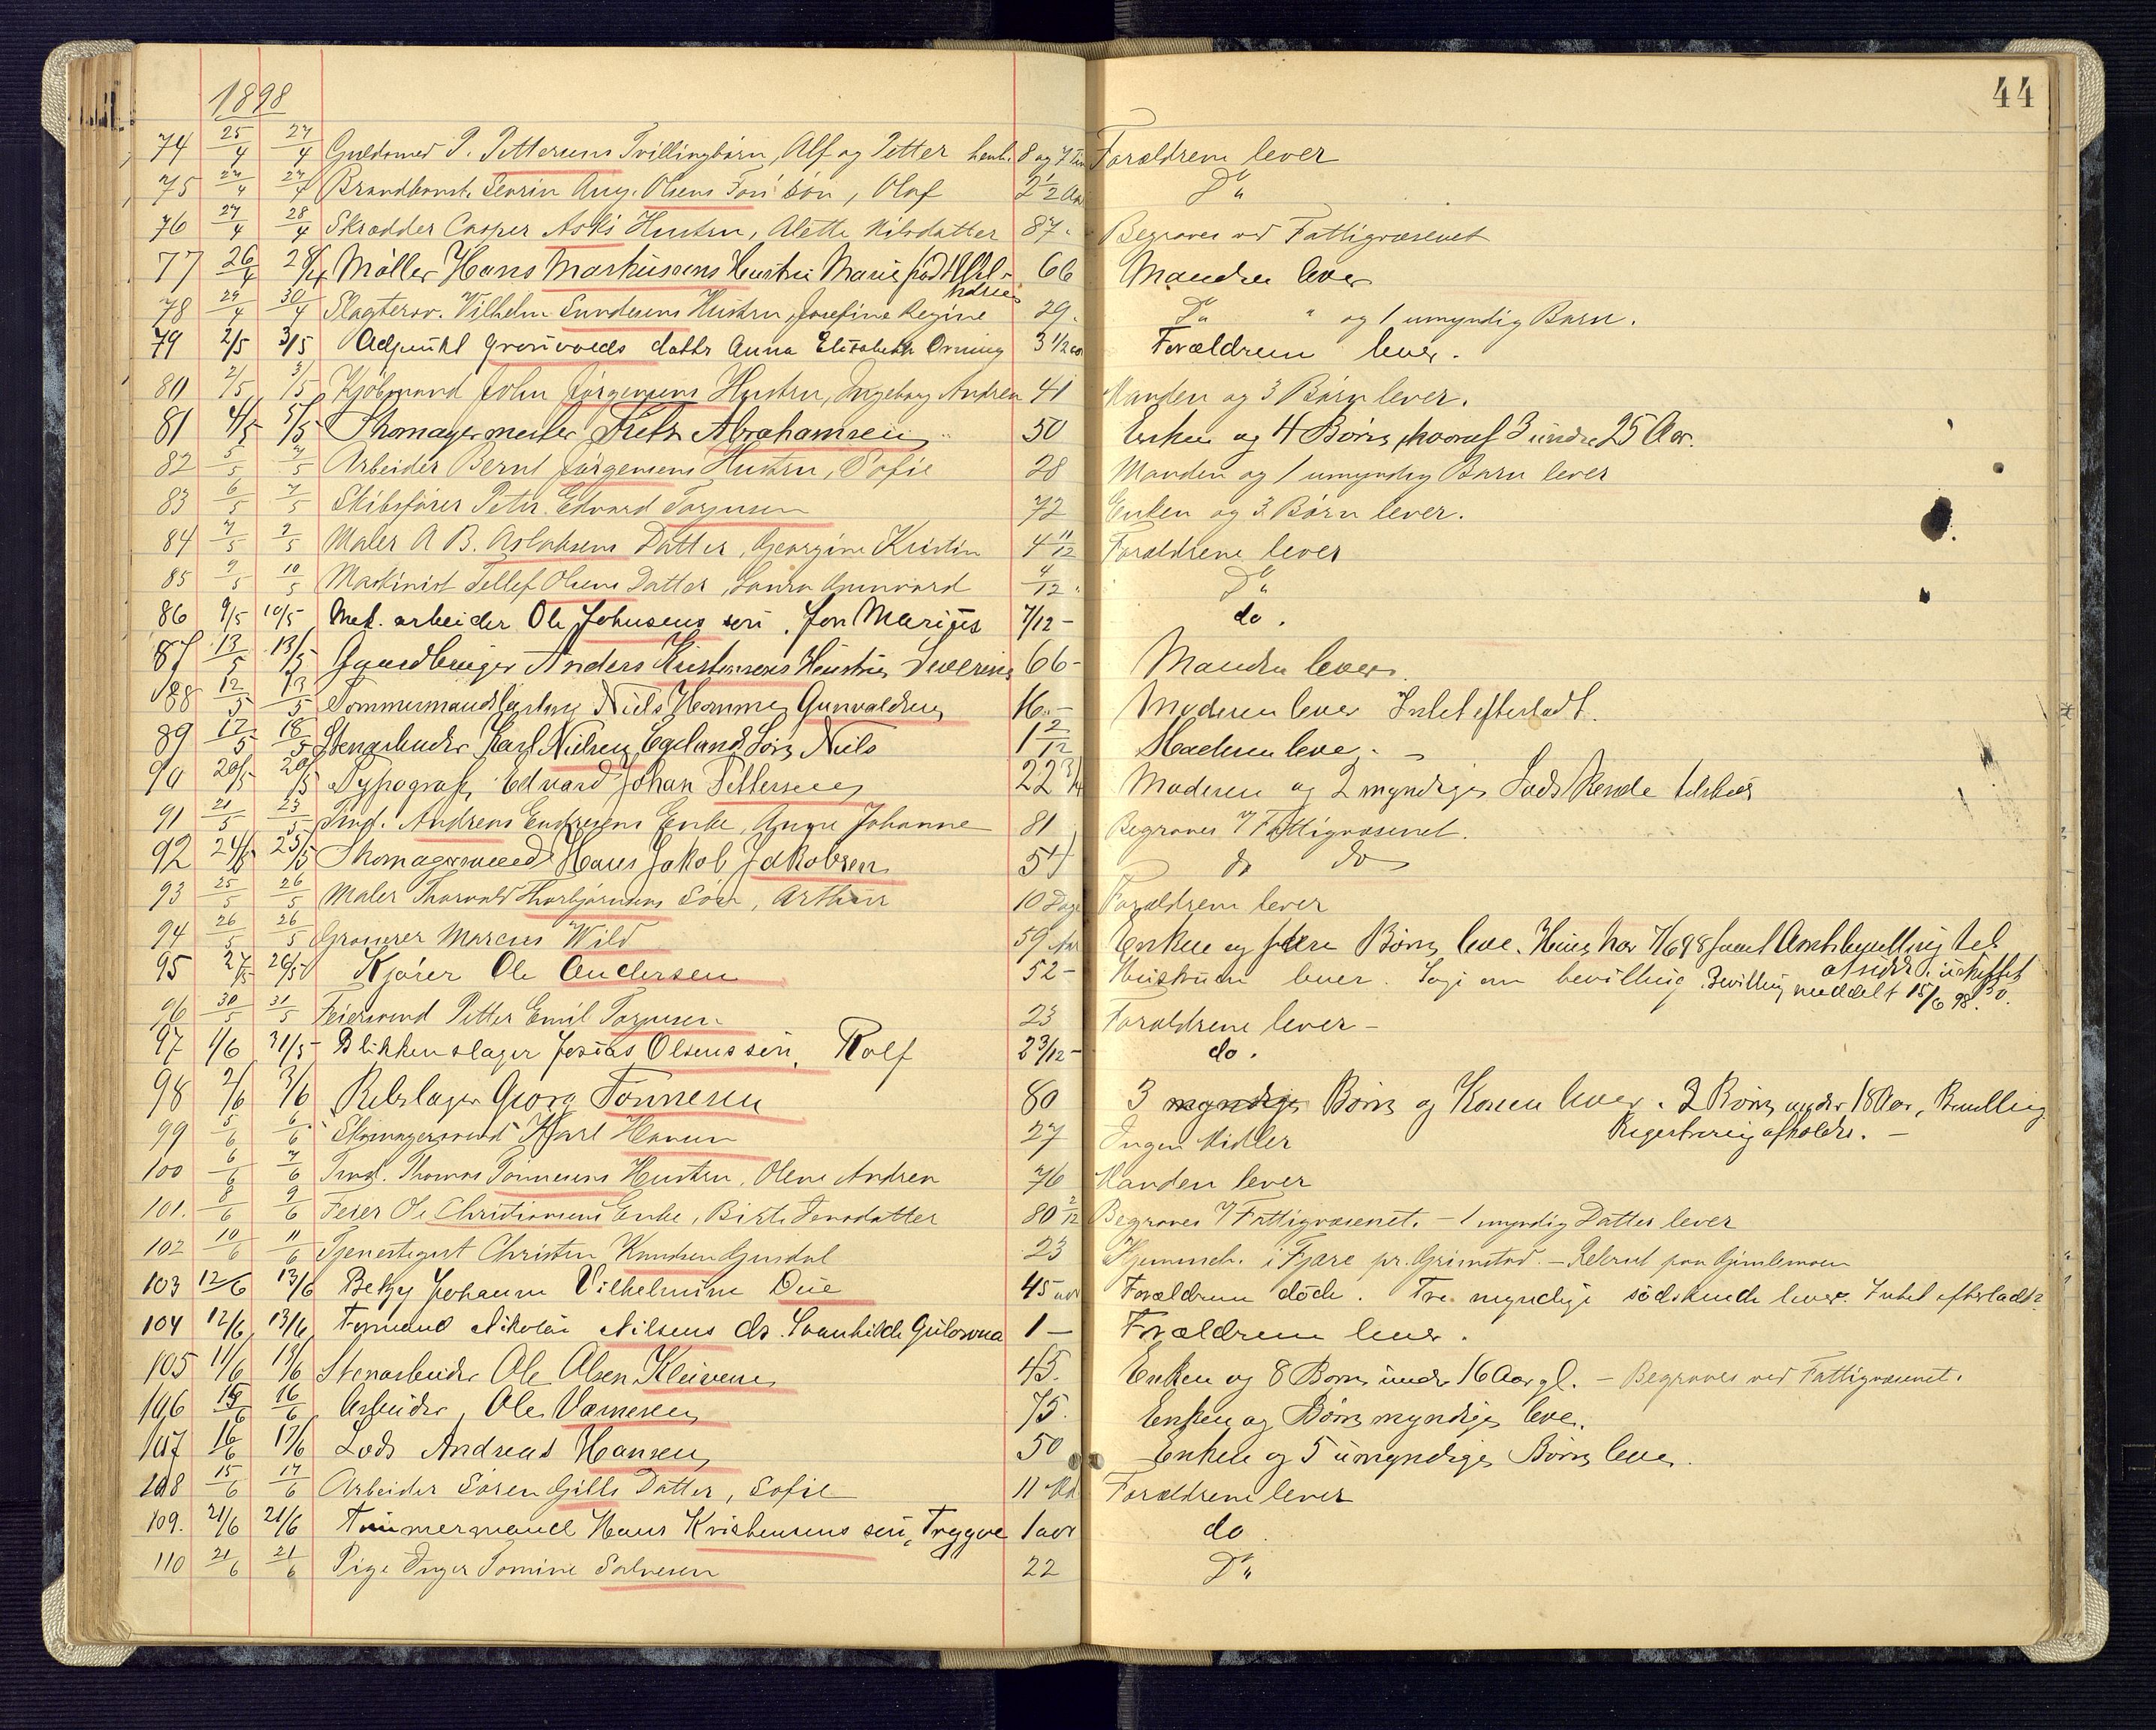 44
1898
74 25/4 27/4 Guldsmed P. Pettersens Tvillingbørn, Alf og Petter henh. 8 og 7 Forældrene lever
75 27/4 27/4 Brandkonst. Severin Aug. Olsens Søn, Olaf 2 1/2 Aar Do "
76 27/4 28/4 Skrædder Casper Asks Hustru, Alette Nilsdatter 87. Begraves ved Fattigvæsenet
77 26/4 28/4 Møller Hans Markussens Hustru Marie født 66 Manden lever
78 29/4 30/4 Slagtersv. Vilhelm Gundersens Hustru, Josefine Regine 29. Do " og 1 umyndig Barn.
79 2/5 3/5 Adjunkt datter Anna Elisabeth Orning 3 1/2 aar Forældrene lever.
80 2/5 3/5 Kjøbmand John Jørgensens Hustru, Ingeborg Andrea 41 Manden og 3 Børn lever.
81 4/5 5/5 Skomagermester Fritz Abrahamsen 50 Enken og 4 Børn, hvoraf 3 under 25 Aar.
82 5/5 7/5 Arbeider Bernt Jørgensens Hustru, Sofie 28 Manden og 1 umyndig Barn lever
83 6/5 7/5 Skibsfører Peter Edvard Torjusen 72 Enken og 3 Børn lever.
84 7/5 7/5 Maler A B. Aslaksens Datter, Georgine Kristin 4 11/12 Forældrene lever
85 9/5 10/5 Maskinist Tellef Olsens Datter, Laura 4/12 Do "
86 9/5 10/5 Mek. arbeider Ole Johnsens søn, Jon Marius 7/12 - do.
87 13/5 13/5 Gaardbruger Anders Kristensens Hustru Severine 66 - Manden lever.
88 12/5 13/5 Tømmermandslærling Niels Homme Gunvaldsen 16. - Moderen lever Intet efterladt.
89 17/5 18/5 Stenarbeider Karl Nielsen Egeland Søn Niels 1 2/12 Moderen lever. -
90 20/5 20/5 Typograf Edvard Johan Pettersen 22 Moderen og 2 myndige Sødskende
91 21/5 23/5 Tmd. Andreas Endresens Enke, Anne Johanne 81 Begraves v/ Fattigvæsenet.
92 24/5 25/5 Skomagersvend Hans Jakob Jakobsen 54 do do
93 25/5 26/5 Maler Thorvald Thorbjørnsens Søn, Arthur 10 Dage Forældrene lever
94 26/5 26/5 Grosserer Marcus Wild 59 Aar Enken og flere Børn lever. Hun har 7/6 98 faaet Amtsbevilling til
at sidde i uskiftet Bo.
95 27/5 26/5 Kjører Ole Andersen 52 - Hustruen lever. Søgt om bevilling. Bevilling meddelt 15/6 98.
96 30/5 31/5 Feiersvend Petter Emil Torjusen 23 Forældrene lever -
97 1/6 31/5 Blikkenslager Josias Olsens søn, Rolf 2 3/12 - do.
98 2/6 3/6 Rebslager Georg Tønnesen 80 3 myndige Børn og Konen lever. 2 Børn under 18 Aar, Bevilling
Registrering afholdt. -
99 5/6 6/6 Skomagersvend Karl Hansen 27 Ingen Midler
100 6/6 7/6 Tmd. Thomas Tønnesens Hustru, Olene Andrea 76 Manden lever
101. 8/6 9/6 Feier Ole Christiansens Enke, Birte Jensdatter 80 2/12 Begraves v/ Fattigvæsenet. - 1 myndig Datter lever
102 10/6 11/6 Tjenestegut Christen Knudsen Gusdal 23 Hjemmeh. i Fjære pr. Grimstad. - Rekrut paa Gimlemoen
103 12/6 13/6 Betzy Johanne Vilhelmine Due 45 aar Forældrene døde. Tre myndige sødskende lever. Intet efterladt.
104 12/6 13/6 Formand Nikolai Nilsens dr. Svanhilde Gulovna 1 - Forældrene lever.
105 11/6 13/6 Stenarbeider Ole Olsen Kleivene 45. Enken og 8 Børn under 16 Aar gl. - Begraves ved Fattigvæsenet.
106 15/6 16/6 Arbeider Ole Varnesen 75. Enken og Børn myndige lever.
107 16/6 17/6 Lods Andreas Hansen 50 Enken og 5 umyndige Børn lever.
108 15/6 17/6 Arbeider Søren Gills Datter, Sofie 11 Md Forældrene lever
109. 21/6 21/6 Tømmermand Hans Kristensens søn, Trygve 1 aar do
110 21/6 21/6 Pige Inger Tomine Salvesen 22 Do "